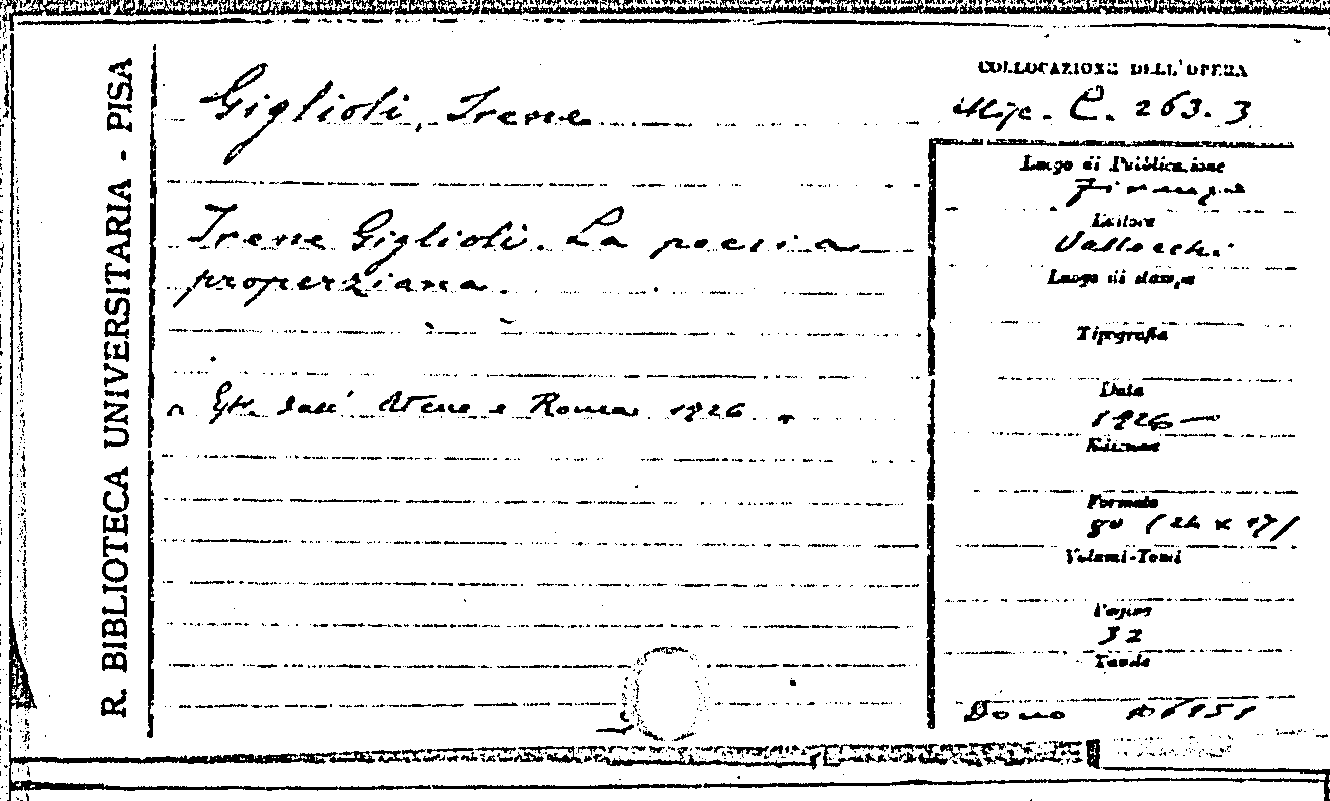 R. BIBLIOTECA UNIVERSITARIA - PISA
Giglioli, Irene
Irene Giglioli. La poesia
properziana.
Estr. dall' Atene e Roma 1926
COLLOCAZIONE DELL'OPERA
Misc. C. 263. 3
Luogo di Pubblicazione
Firenze
Editore
Vallecchi
Luogo di stampa
Tipografia
Data
1926
Edizione
Formato
8º (24 x 17)
Volumi-Tomi
Pagine
32
Tavole
Dono